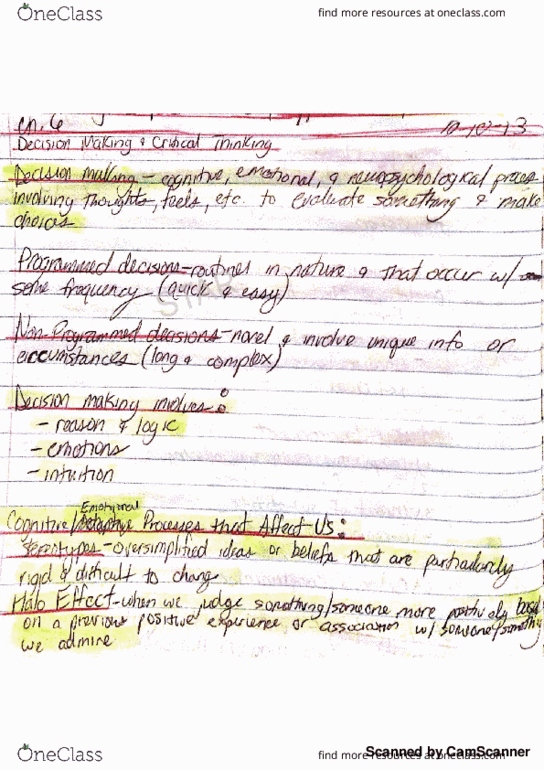 OneClass
find more resources at oneclass.com
Ch. 6
10-10-13
Decision Making & Critical Thinking
Decision making - cognitive, emotional, & neuropsychological process
involving thoughts, feels, etc. to evaluate something & make
choices
Programmed decisions - routined in nature & that occur w/
some frequency (quick & easy)
Non-Programmed decisions - novel & involve unique info or
circumstances (long & complex)
Decision making involves:
- reason & logic
- emotions
- intuition
Emotional
Cognitive/ Processes that Affect Us:
Stereotypes - oversimplified ideas or beliefs that are particularly
rigid & difficult to change
Halo Effect - when we judge something/someone more positively based
on a previous positive experience or association w/ someone/something
we admire
OneClass
find more resources at oneclass.com
Scanned by CamScanner